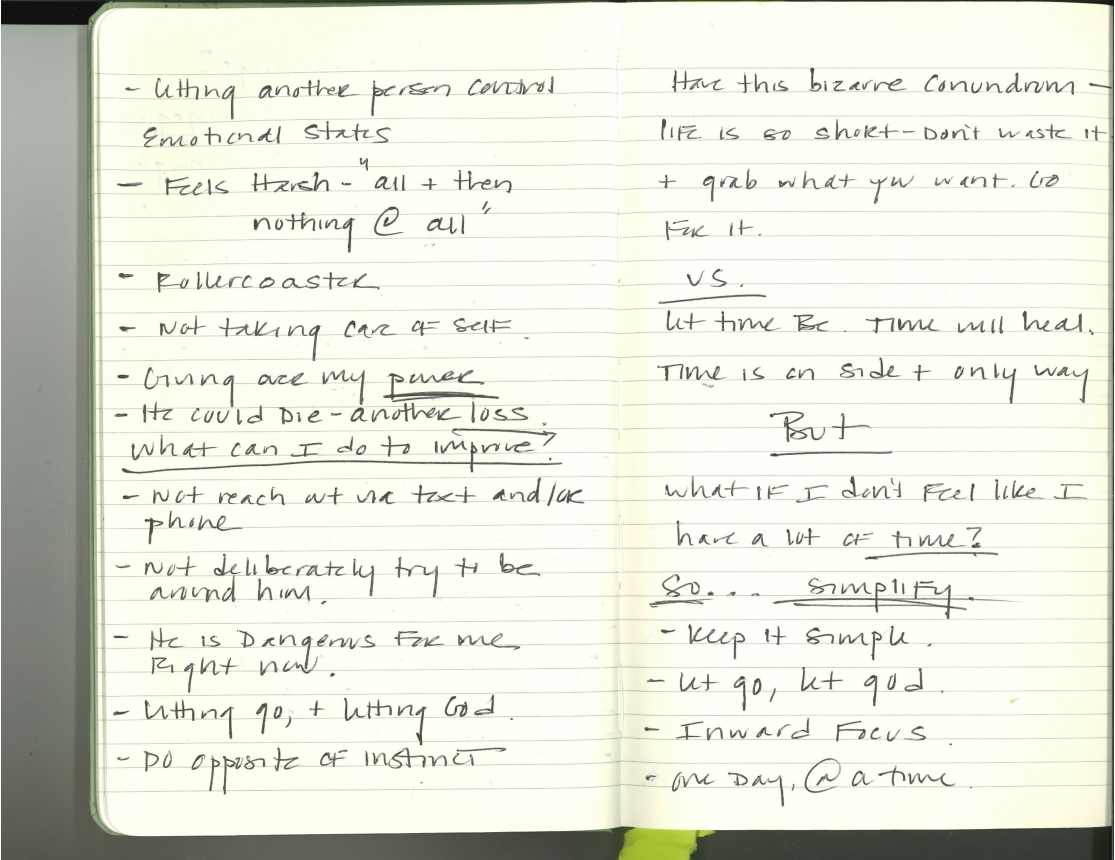 - Letting another person control
Emotional States
- Feels Harsh - "all + then
nothing @ all"
- Rollercoaster
- Not taking care of self.
- Giving over my power
- He could Die - another loss.
What can I do to improve?
- Not reach out via text and/or
phone
- Not deliberately try to be
around him.
- He is Dangerous For me
Right now.
- Letting go, + letting God.
- Do opposite of instinct
Have this bizarre conundrum -
life is so short - Don't waste it
+ grab what you want. Go
For it.
vs.
Let time Be. Time will heal.
Time is on side + only way
But
what IF I don't Feel like I
have a lot of time?
So.... Simplify.
- Keep it simple.
- Let go, let god.
- Inward Focus.
- one Day, @ a time.